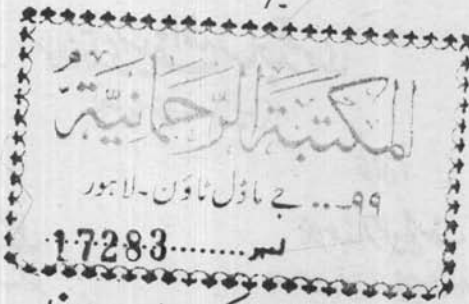 المكتبة الرحمانية
۹۹... جے ماڈل ٹاؤن - لاہور
نمبر.......17283